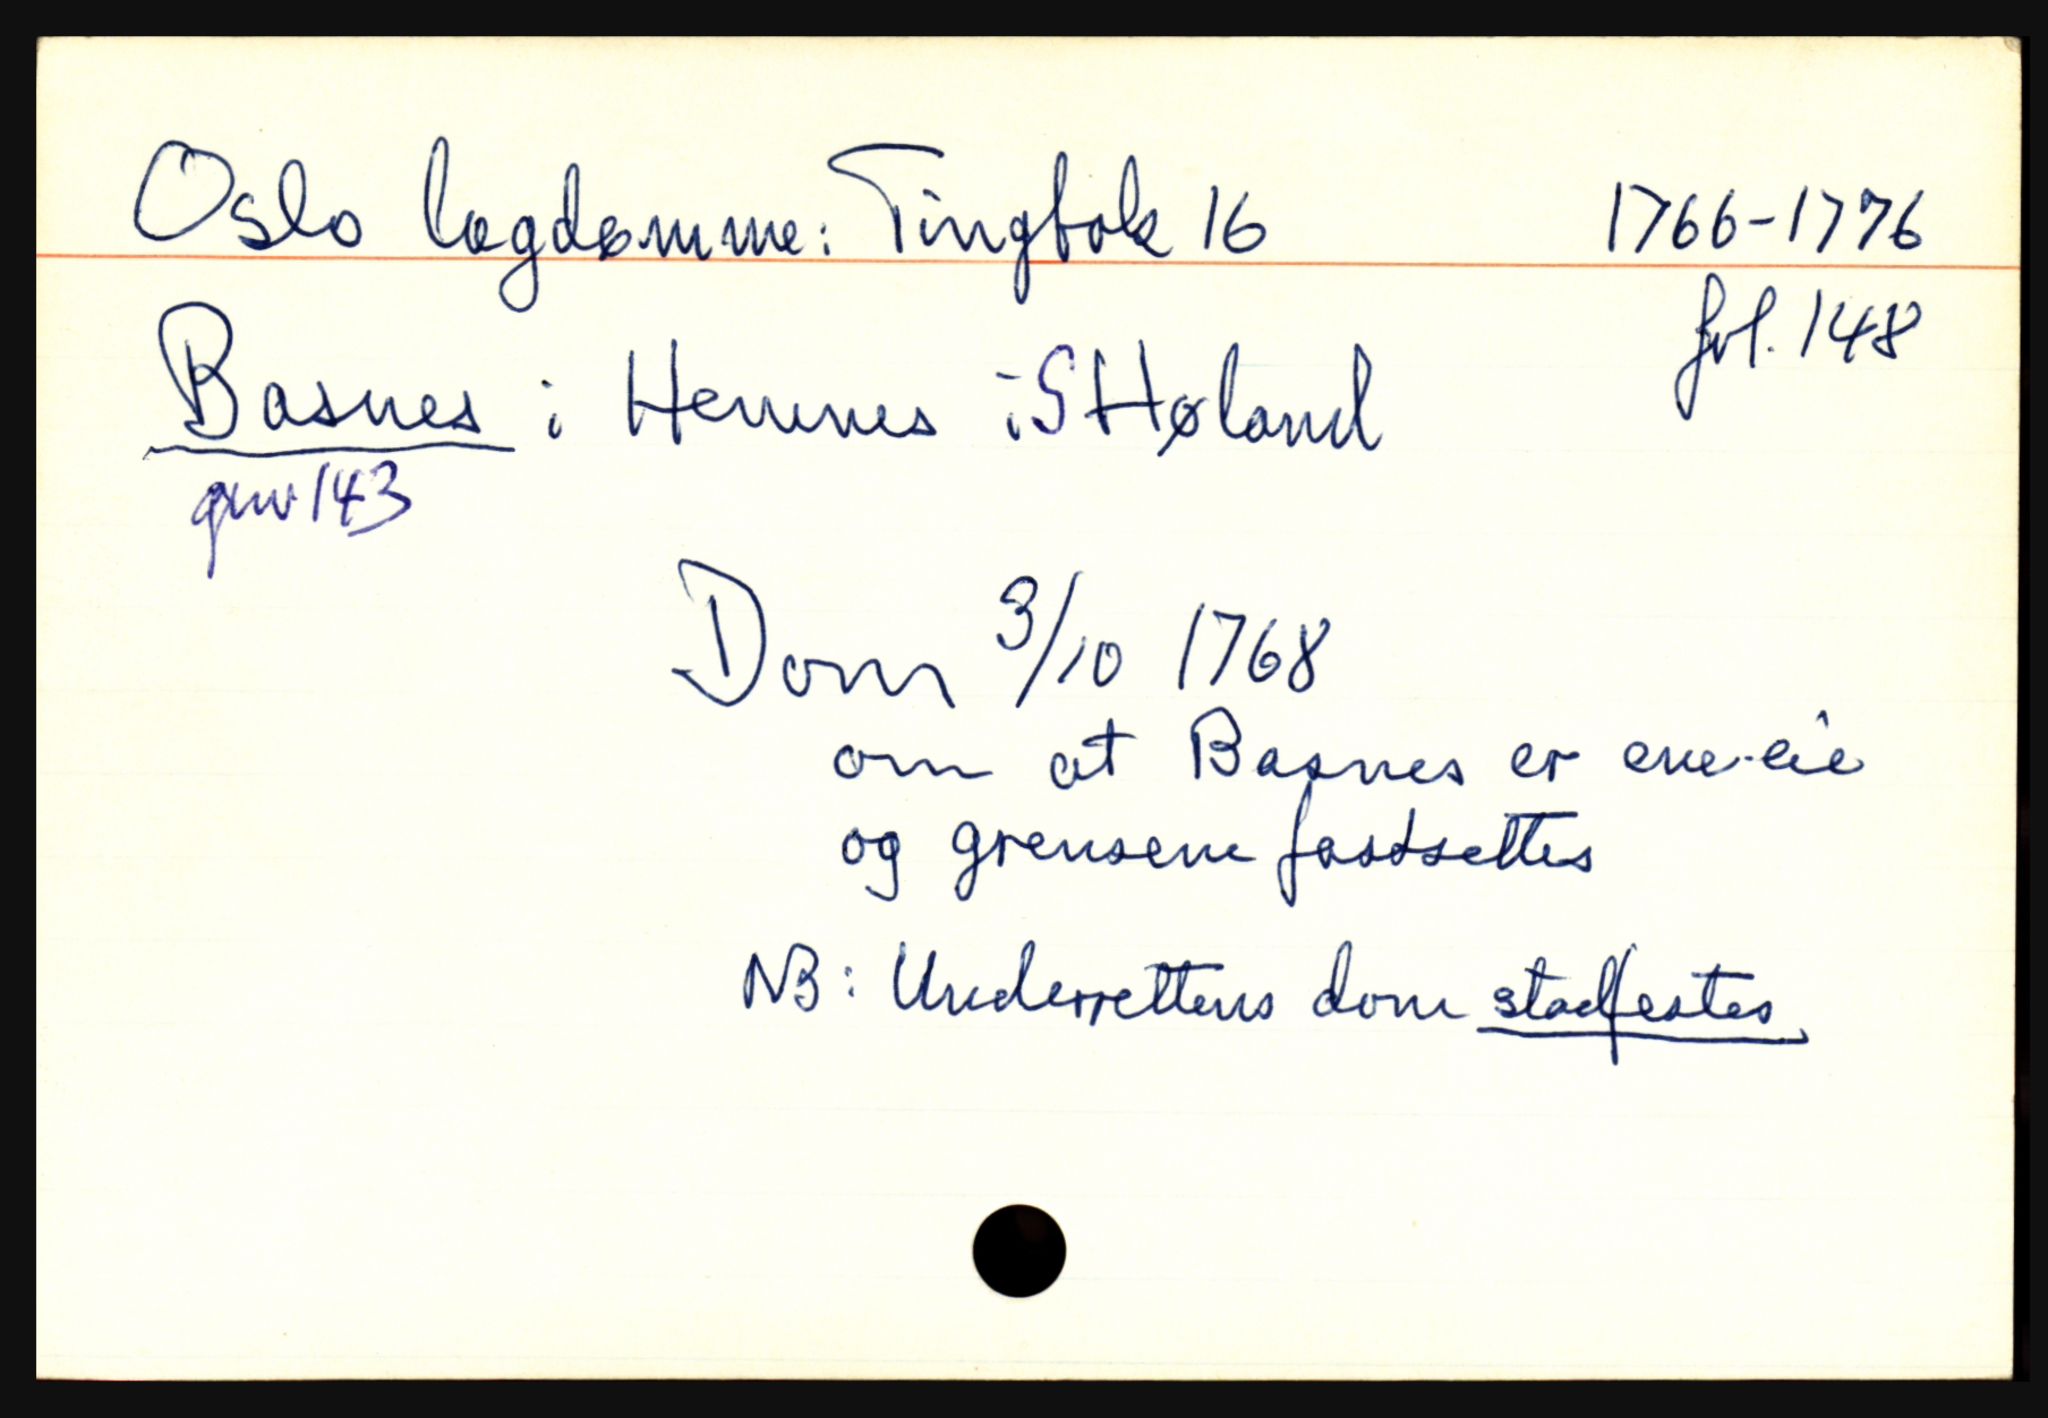 Oslo lagdømme: Tingbok 16 1766-1776
fol. 148
Basnes i Hemnes i S Høland
gnr 143
Dom 3/10 1768
om at Basnes er ene-eie
og grensene fastsettes
NB: Underrettens dom stadfestes